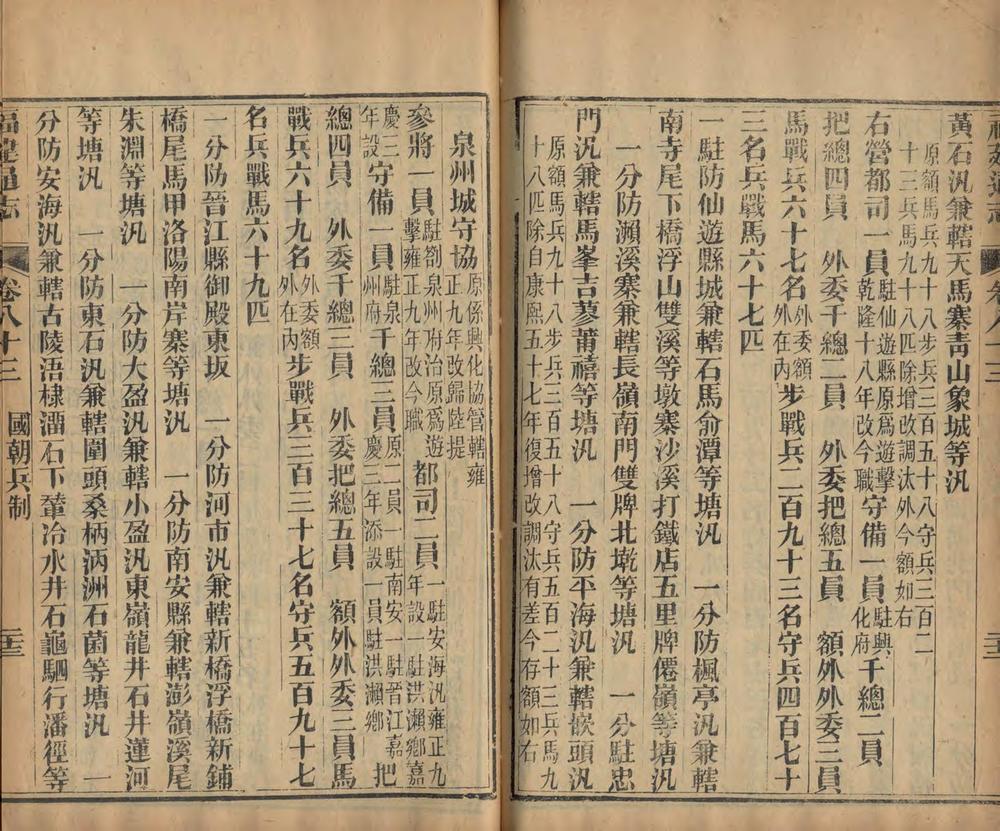 黃石汛兼轄天馬寨青山象城等汛
原額馬兵九十八步兵三百五十八守兵三百二
十三兵馬九十八匹除增改調汰外今額如右
右營都司一員駐仙遊縣原爲遊擊乾隆十八年改今職守備一員駐興化府千總二員
把總四員　外委千總二員　外委把總五員　額外外委三員
馬戰兵六十七名外委額外在內步戰兵二百九十三名守兵四百七十
三名兵戰馬六十七匹
一駐防仙遊縣城兼轄石馬俞潭等塘汛　一分防楓亭汛兼轄
南寺尾下橋浮山雙溪等墩寨沙溪打鐵店五里牌僊嶺等塘汛
一分防瀨溪寨兼轄長嶺南門雙牌北墘等塘汛　一分駐忠
門汛兼轄馬峯吉蓼莆禧等塘汛　一分防平海汛兼轄嵌頭汛
原額馬兵九十八步兵三百五十八守兵五百二十三兵馬九
十八匹除自康熙五十七年復增改調汰有差今存額如右
泉州城守協原係興化協管轄雍正九年改歸陸提
參將一員駐劄泉州府治原爲遊擊雍正九年改今職都司二員一駐安海汛雍正九年設一駐洪瀨鄉嘉
慶三年設守備一員駐泉州府千總三員原二員一駐南安一駐晉江嘉慶三年添設一員駐洪瀨鄉把
總四員　外委千總三員　外委把總五員　額外外委三員馬
戰兵六十九名外委額外在內步戰兵三百三十七名守兵五百九十七
名兵戰馬六十九匹
一分防晉江縣御殿東坂　一分防河市汛兼轄新橋浮橋新鋪
橋尾馬甲洛陽南岸寨等塘汛　一分防南安縣兼轄澎嶺溪尾
朱淵等塘汛　一分防大盈汛兼轄小盈汛東嶺龍井石井蓮河
等塘汛　一分防東石汛兼轄圍頭桑柄洲石菌等塘汛　一
分防安海汛兼轄古陵浯棣㴰石下輋冶水井石龜駟行潘徑等
福建通志　卷八十三　國朝兵制